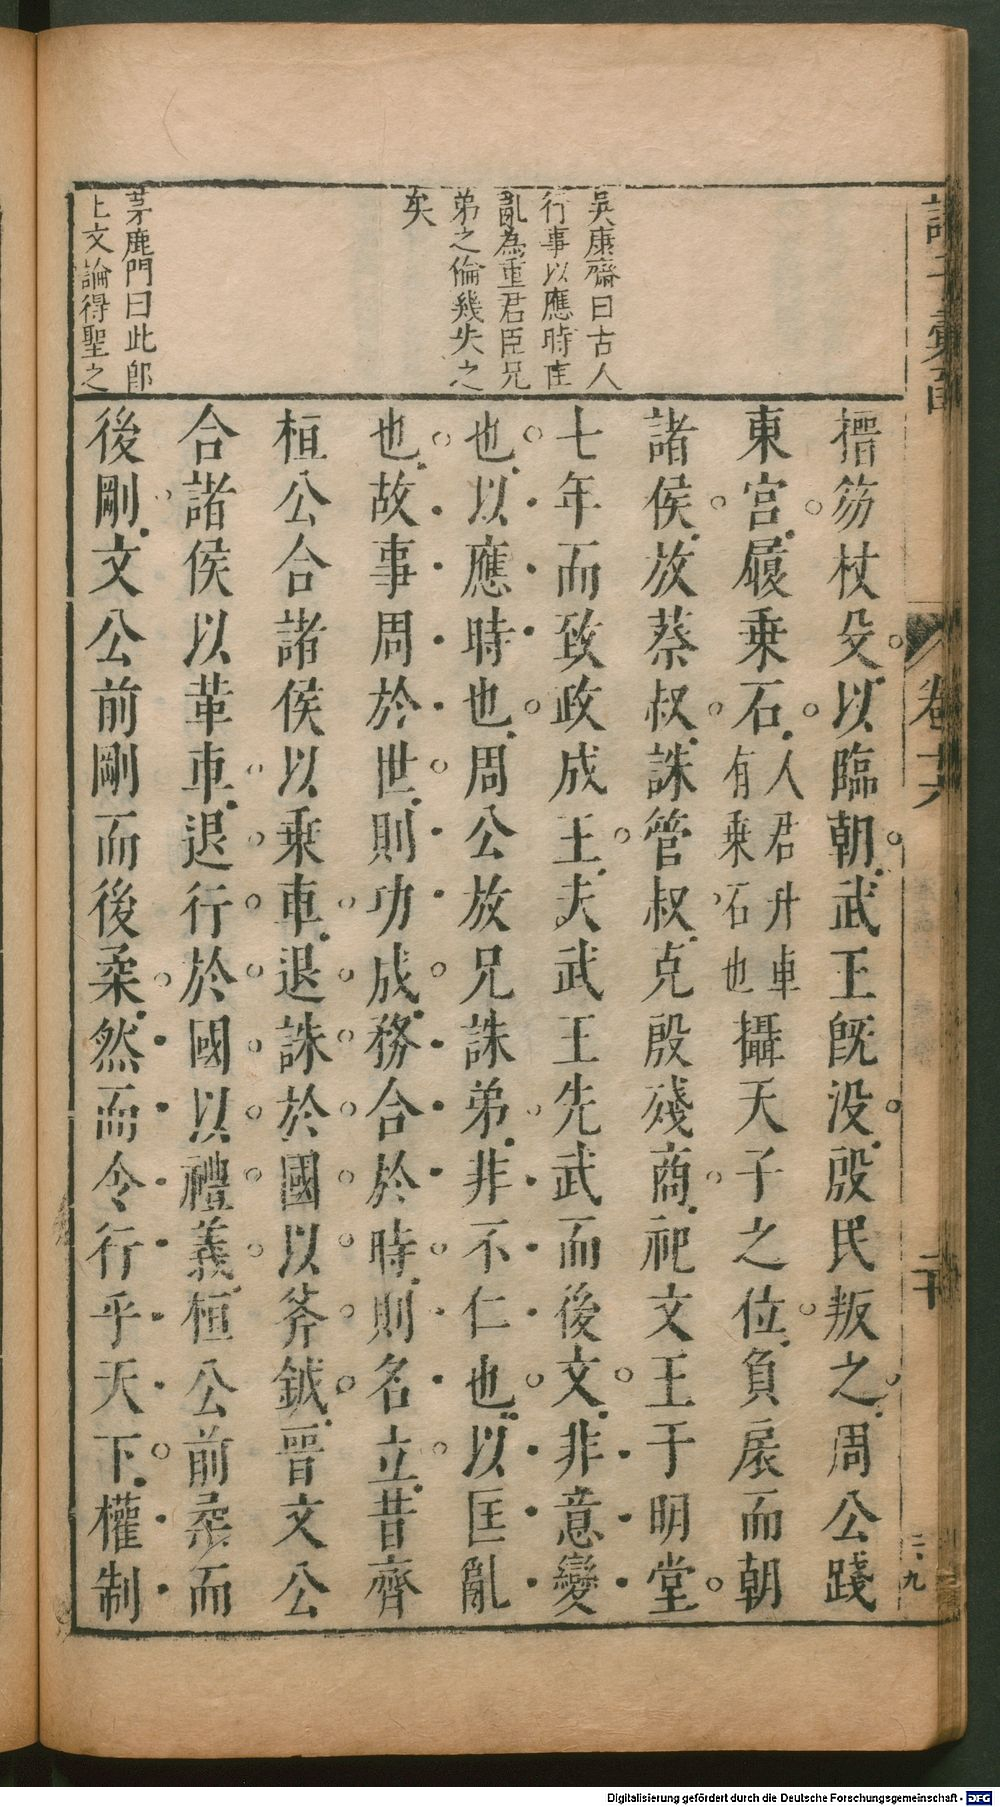 吳康齋曰古人
行事以應時匡
亂為重君臣兄
弟之倫幾失之
矣
茅鹿門曰此卽
上文論得聖之
搢笏杖殳以臨朝武王旣没殷民叛之周公踐
東宮履乗石人君升車有乗石也攝天子之位負扆而朝
諸侯放蔡叔誅管叔克殷殘商祀文王于明堂
七年而致政成王夫武王先武而後文非意變
也以應時也周公放兄誅弟非不仁也以匡亂
也故事周於世則功成務合於時則名立昔齊
桓公合諸侯以乗車退誅於國以斧鉞晉文公
合諸侯以革車退行於國以禮義桓公前柔而
後剛文公前剛而後柔然而令行乎天下權制
卷十六
二十
二九
Digitalisierung gefördert durch die Deutsche Forschungsgemeinschaft - DFG